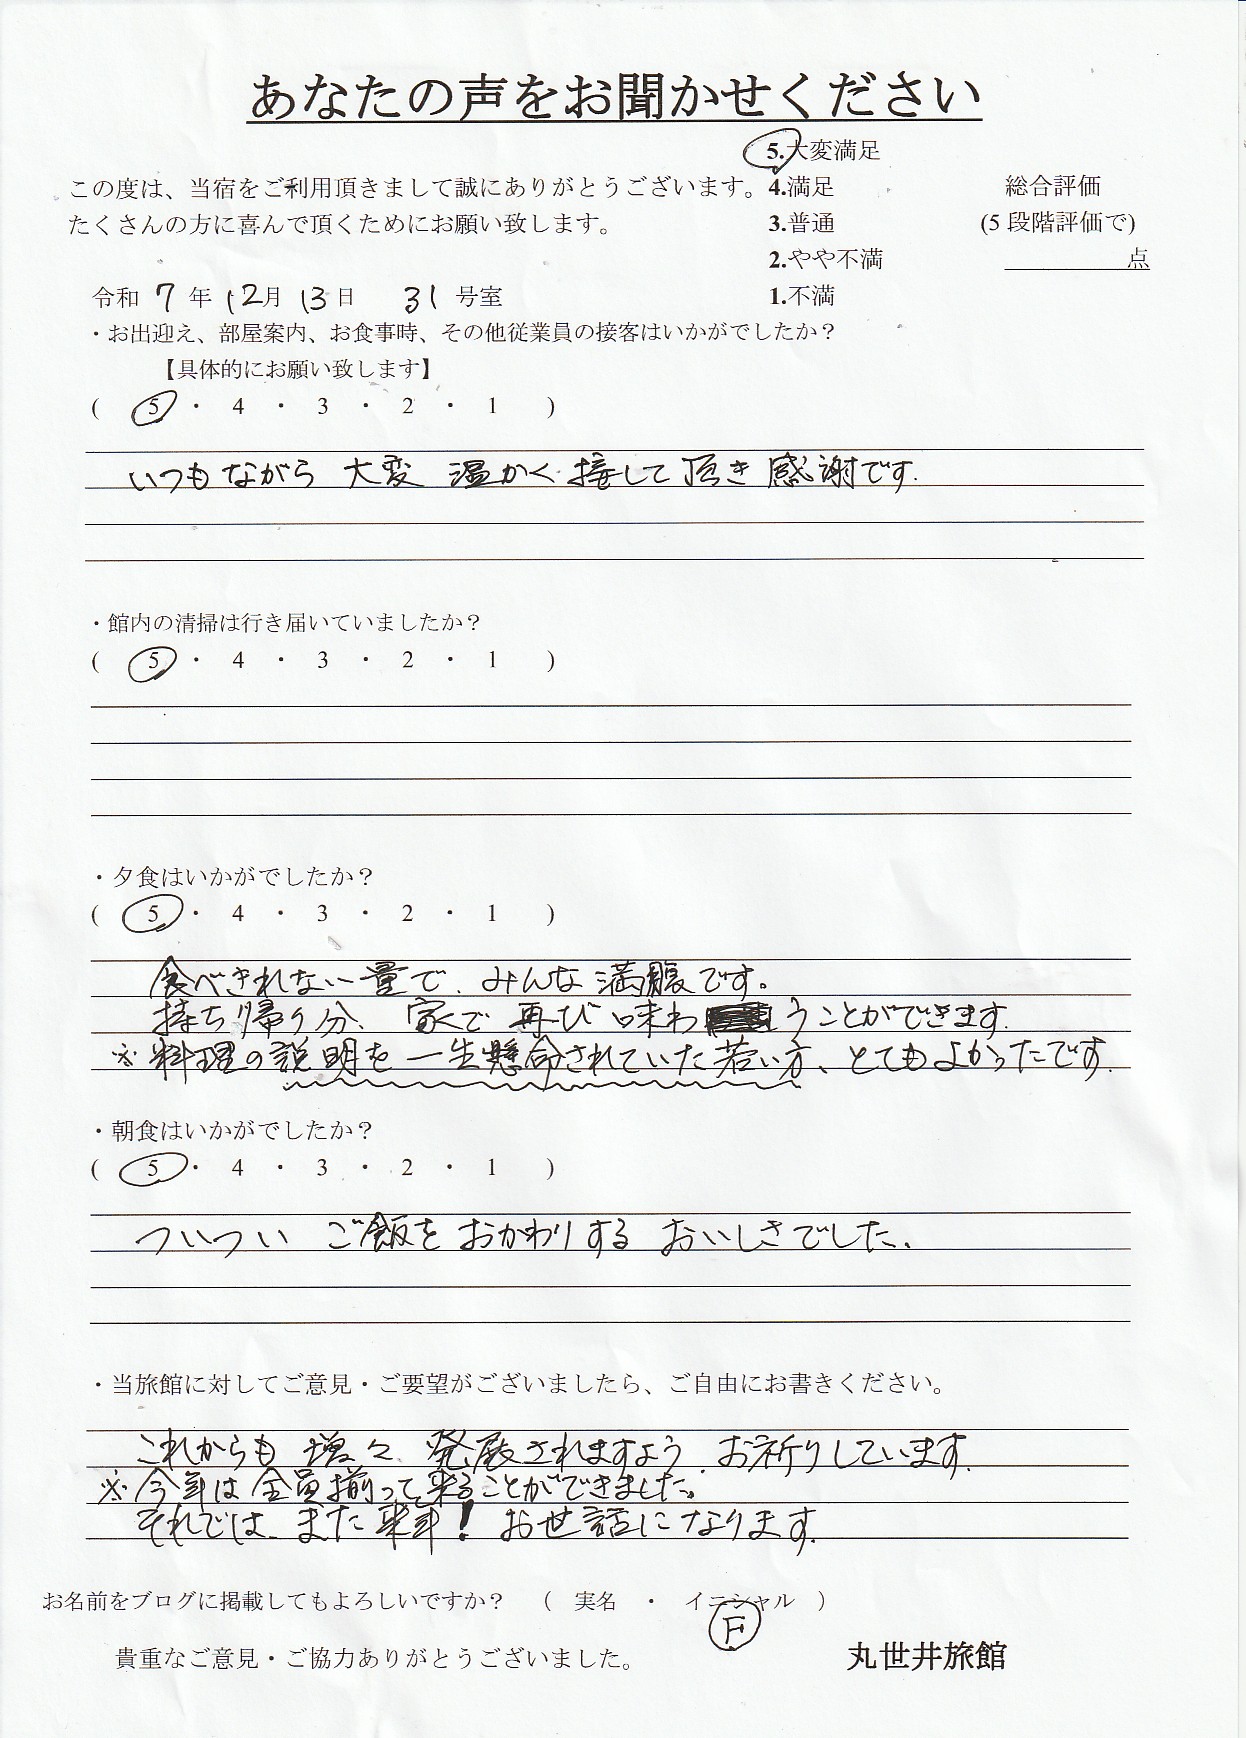 あなたの声をお聞かせください
5.大変満足
この度は、当宿をご利用頂きまして誠にありがとうございます。 4.満足 総合評価
たくさんの方に喜んで頂くためにお願い致します。 3.普通 (5段階評価で)
2.やや不満 点
令和 7 年 12月 13日 31 号室 1.不満
・お出迎え、部屋案内、お食事時、その他従業員の接客はいかがでしたか？
【具体的にお願い致します】
( 5 ・ 4 ・ 3 ・ 2 ・ 1 )
いつもながら 大変 温かく接して頂き感謝です.
・館内の清掃は行き届いていましたか？
( 5 ・ 4 ・ 3 ・ 2 ・ 1 )
・夕食はいかがでしたか？
( 5 ・ 4 ・ 3 ・ 2 ・ 1 )
食べきれない量で、みんな満腹です。
持ち帰り分、家で再び味わうことができます.
※料理の説明を一生懸命されていた若い方、とてもよかったです.
・朝食はいかがでしたか？
( 5 ・ 4 ・ 3 ・ 2 ・ 1 )
ついつい ご飯を おかわりする おいしさでした、
・当旅館に対してご意見・ご要望がございましたら、ご自由にお書きください。
これからも 増々、発展されますよう、お祈りしています.
※今年は全員揃って来ることができました。
それでは、また来年！ お世話になります.
お名前をブログに掲載してもよろしいですか？ ( 実名 ・ イニシャル )
F
貴重なご意見・ご協力ありがとうございました。 丸世井旅館